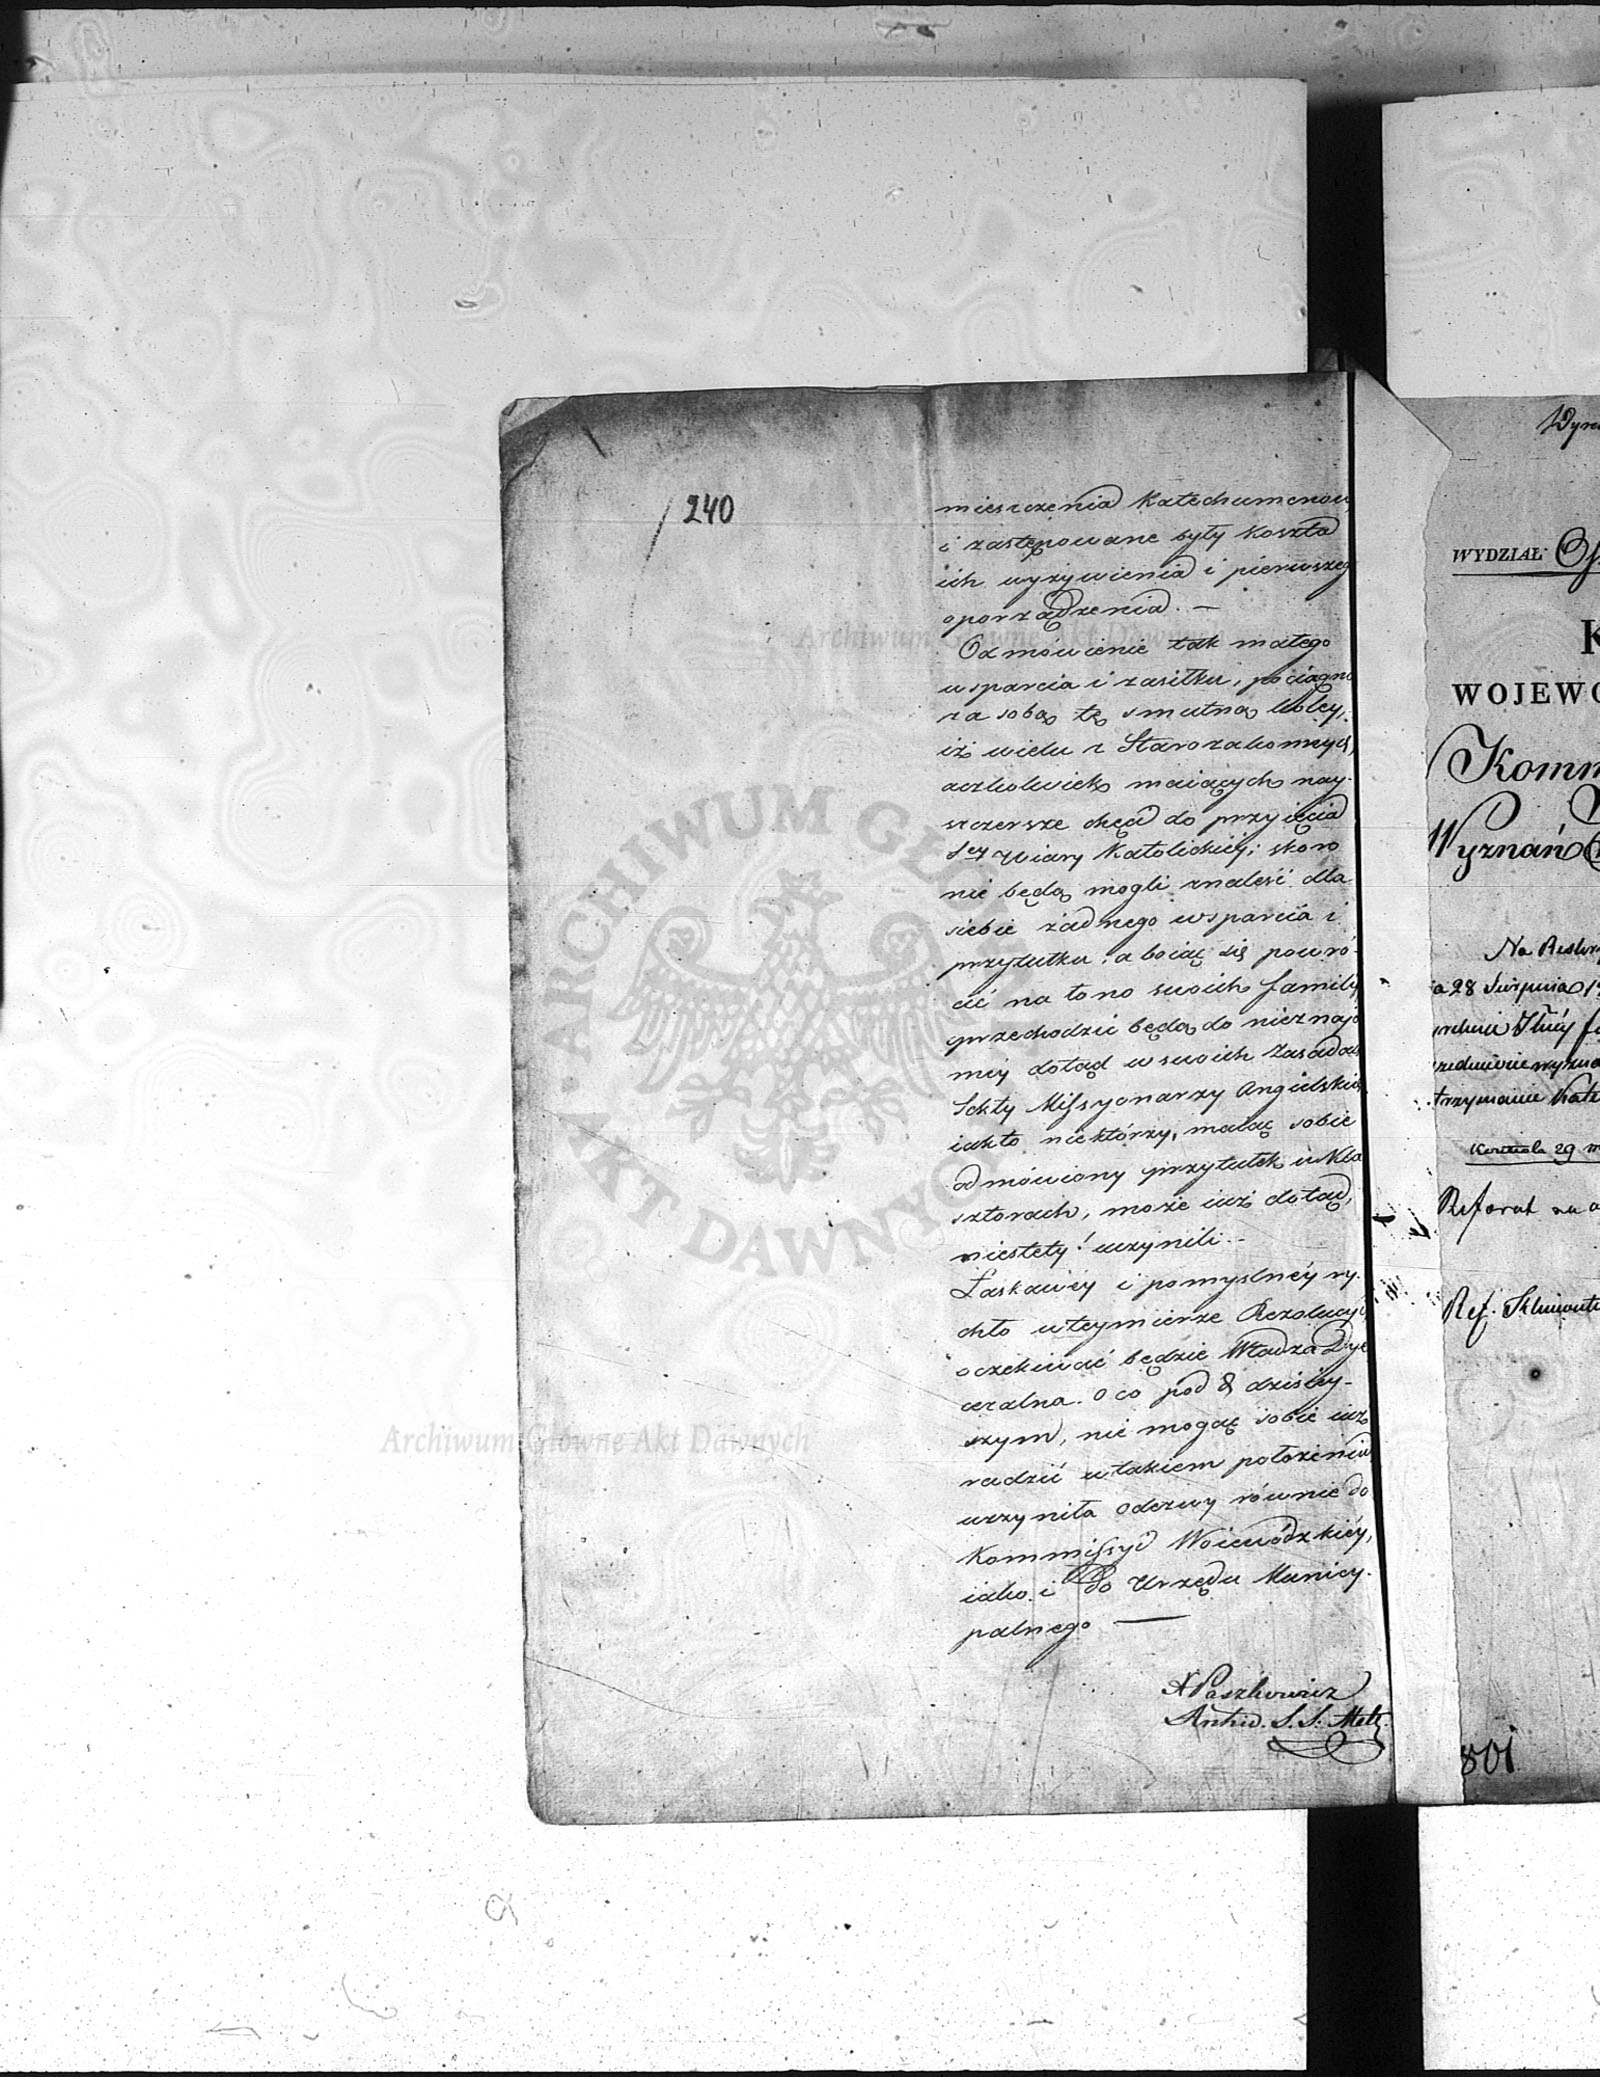 240
mieszczenia Katechumenow
i zastępowane były koszta
ich wyżywienia i pierwszeg
oporządzenia. —
Odmówienie tak małego
wsparcia i zasiłku, pociągn
za sobą tę smutną koléy,
iż wielu z Starozakonnych,
aczkolwiek maiących nay-
szczersze chęci do przyięcia
Sey Wiary Katolickiéy; skoro
nie będą mogli znaleść dla
siebie żadnego wsparcia i
przytułku, a boiąc się powró-
cić na łono swoich familiy
przechodzić będą do nieznajo
méy dotąd w swoich zasadach
Sekty Missyonarzy Angielskich
iak to niektórzy, maiąc sobie
odmówiony przytułek w Kla
sztorach, może iuż dotąd,
niestety! uczynili. -
Łaskawéy i pomyślnéy ry-
chło w téymierze Rezolucyi
oczekiwać będzie Władza Dye
cezalna. O co pod d dzisiéy-
szym, nie mogąc sobie iuż
radzić w takiem położeniu
uczyniła odezwy równie do
Kommissyi Woiewódzkiéy,
iako i do Urzędu Municy-
palnego —
A Paszkowicz
Archid. S. S. Mett.
WYDZIAŁ
K
WOJEWO
Komm
Wyznań
Na Reskry
a 28 Sierpnia 18
trzymanie Kate
29 m
Referat na
Ref.
801
Archiwum Główne Akt Dawnych
ARCHIWUM GŁÓWNE AKT DAWNYCH
Archiwum Główne Akt Dawnych